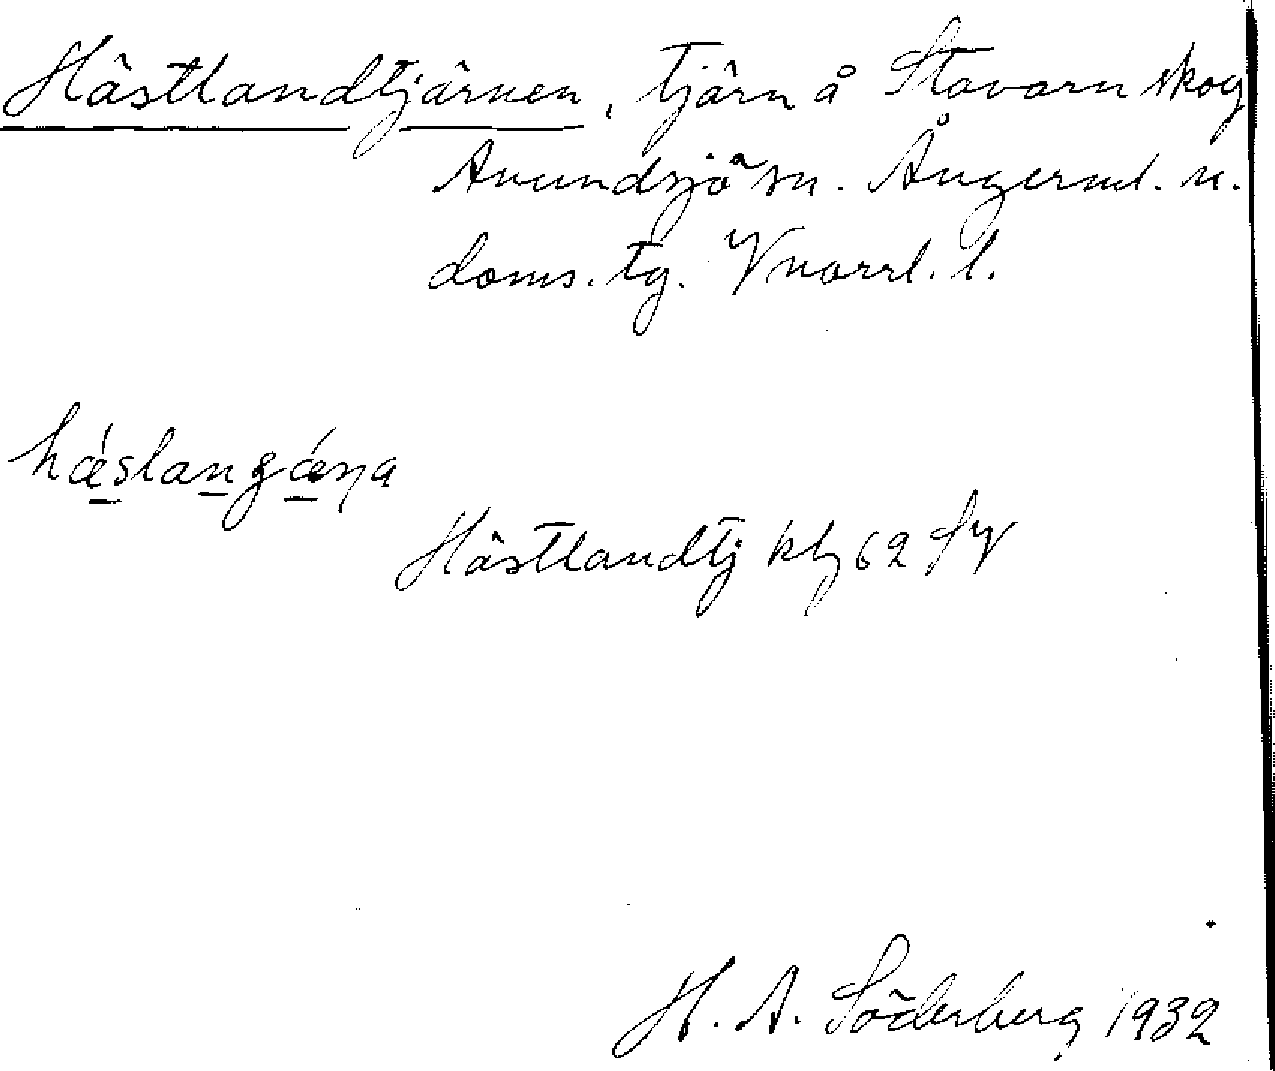 Hästlandtjärnen, tjärn å Stavarn skog
Avundsjö sn. Ångerml. n.
doms. tg. Vnorrl. l.
hǽslangǽṇa
Hästlandtj kbl 62 SV
H. A. Söderberg 1932